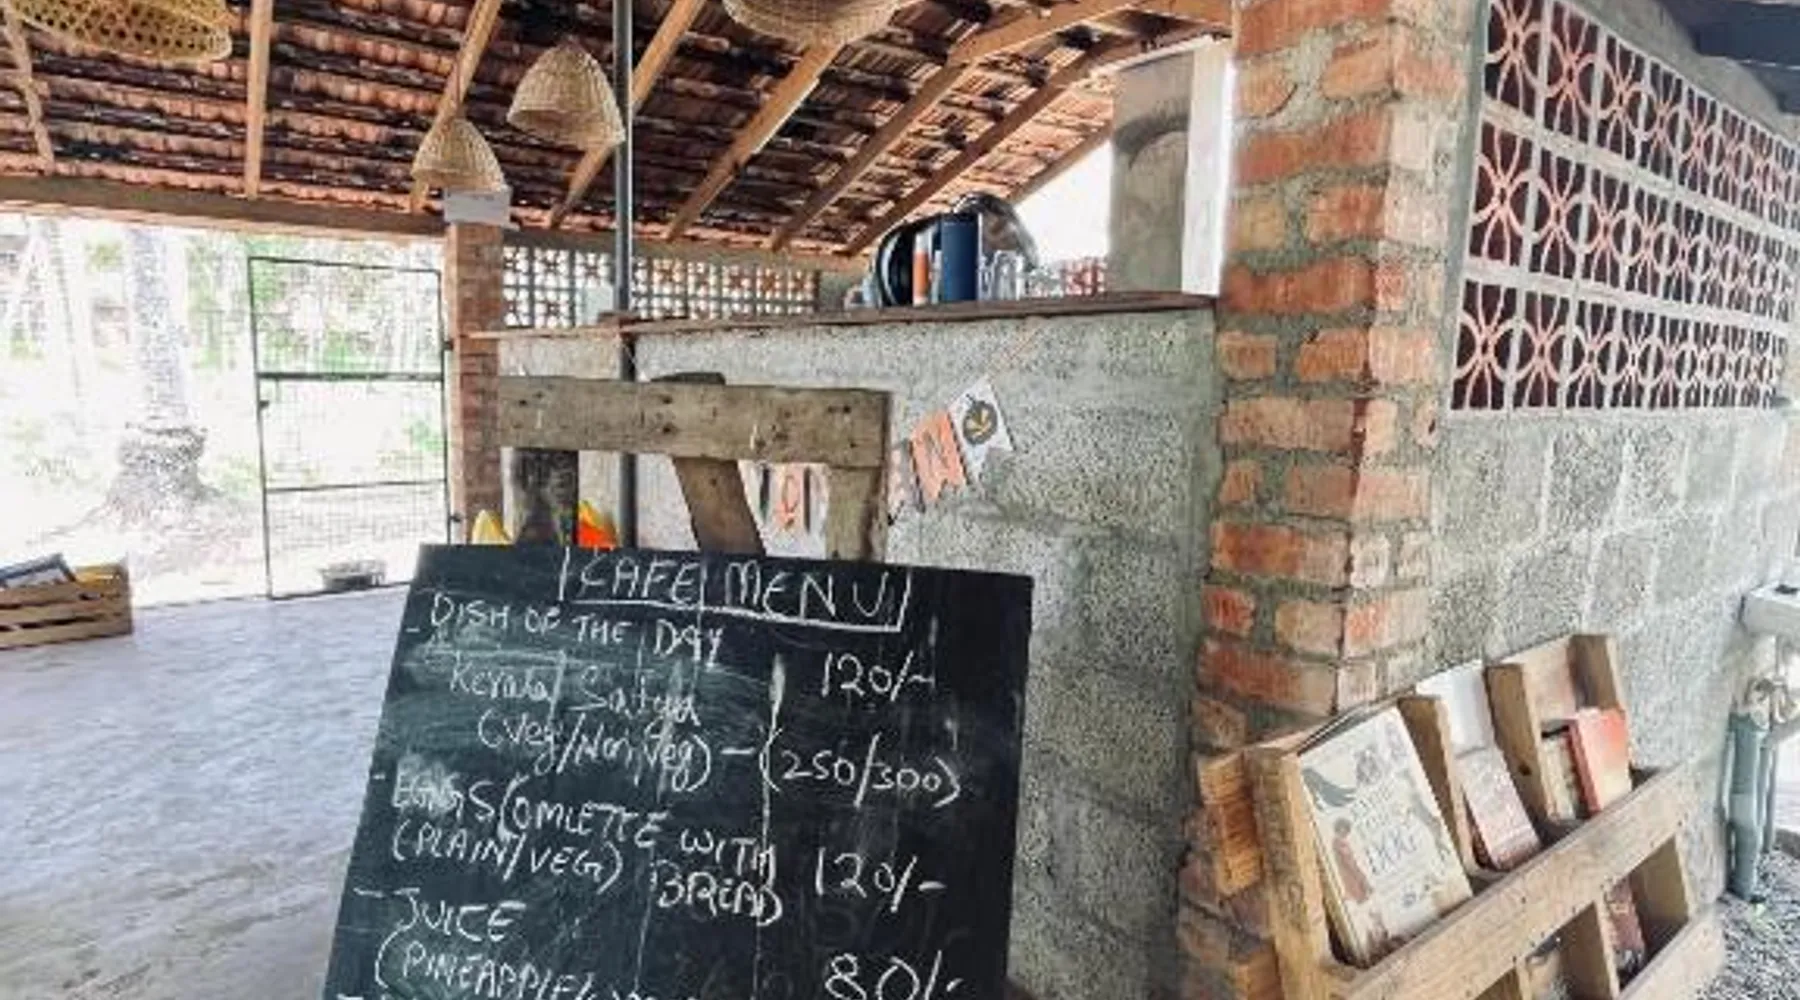 CAFE MENU
DISH OF THE DAY 120/-
Kerala Satya
(Veg/Non Veg) - (250/300)
- EGGS (OMLETTE WITH
(PLAIN/VEG) BREAD 120/-
- JUICE
(PINEAPPLE/ 80/-
DOG